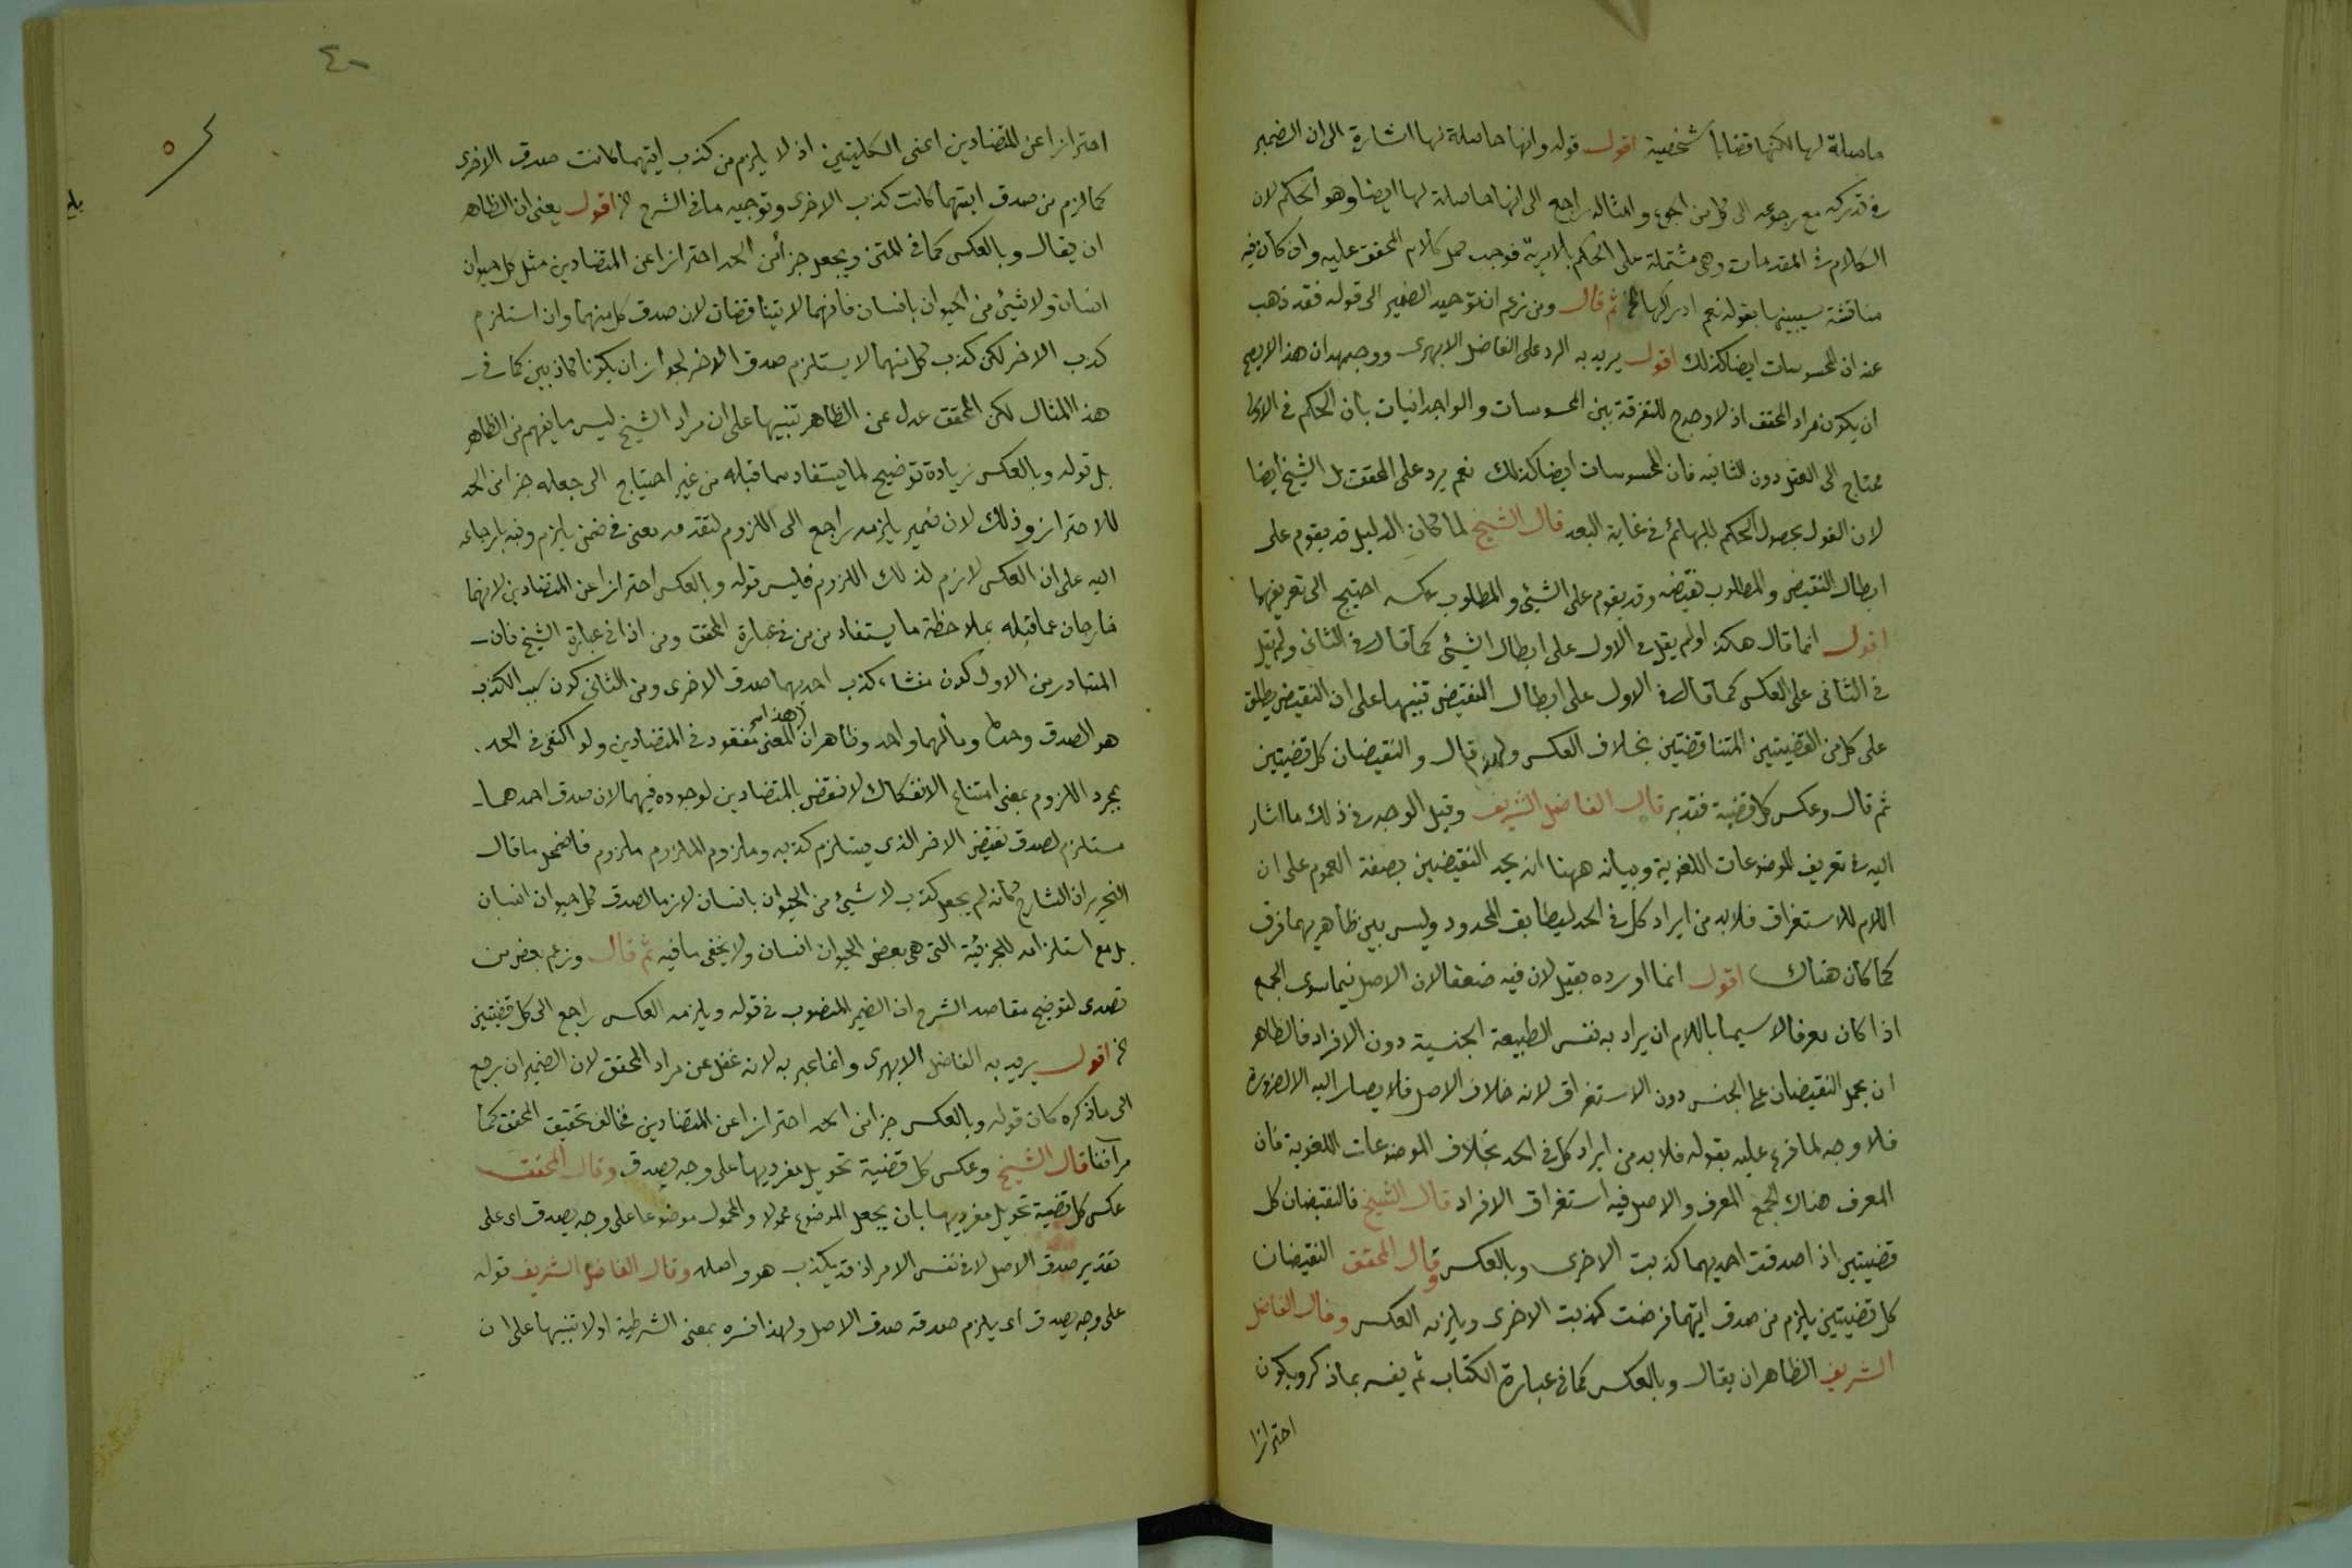 حاصلة لها لكنها قضايا شخصية اقول قوله وانها حاصلة لها اشارة الى ان الضمير
في تدركه مع رجوعه الى كل من الجوع وامثاله راجع الى انها حاصلة لها ايضا وهو الحكم لان
الكلام في المقدمات وهي مشتملة على الحكم بالامرية فوجب حمل كلام المحقق عليه وان كان فيه
مناقشة سيبينها بقوله نعم ادراكها الخ ثم قال ومن زعم ان توحيد الضمير الى قوله فقد ذهب
عنه ان المحسوسات ايضا كذلك اقول يريد به الرد على الفاضل الابهرى ووجهه ان هذا لا يصح
ان يكون مراد المحقق اذ لا وجه ح للتفرقة بين المحسوسات والوجدانيات بان الحكم في الاولى
محتاج الى العقل دون الثانية فان المحسوسات ايضا كذلك نعم يرد على المحقق بل الشيخ ايضا
لان القول بحصول الحكم للبهائم في غاية البعد قال الشيخ لما كان الدليل قد يقوم على
ابطال النقيض والمطلوب نقيضه وقد يقوم على الشيئ والمطلوب عكسه احتيج الى تعريفهما
اقول انما قال هكذا ولم يقل في الاول على ابطال الشيئ كما قال في الثانى ولم يقل
في الثانى على العكس كما قال في الاول على ابطال النقيض تنبيها على ان النقيض يطلق
على كل من القضيتين المتناقضتين بخلاف العكس ولهذا قال والنقيضان كل قضيتين
ثم قال وعكس كل قضية فتدبر قال الفاضل الشريف وقيل الوجه في ذلك ما اشار
اليه في تعريف الموضوعات اللغوية وبيانه ههنا انه يحد النقيضين بصفة العموم على ان
اللام للاستغراق فلابد من ايراد كل في الحد ليطابق المحدود وليس بين ظاهريهما فرق
كما كان هناك اقول انما اورده بقيل لان فيه ضعفا لان الاصل فيما سوى الجمع
اذا كان معرفا لا سيما باللام ان يراد به نفس الطبيعة الجنسية دون الافراد فالظاهر
ان يحمل النقيضان على الجنس دون الاستغراق لانه خلاف الاصل فلا يصار اليه الا لضرورة
فلا وجه لما فرع عليه بقوله فلابد من ايراد كل في الحد بخلاف الموضوعات اللغوية فان
المعرف هناك الجمع المعرف والاصل فيه استغراق الافراد قال الشيخ فالنقيضان كل
قضيتين اذا صدقت احديهما كذبت الاخرى وبالعكس وقال المحقق النقيضان
كل قضيتين يلزم من صدق ايتهما فرضت كذبت الاخرى ويلزمه العكس وقال الفاضل
الشريف الظاهر ان يقال وبالعكس كما في عبارة الكتاب ثم يفسر بما ذكر ويكون
احترازا
٤٠
احترازا عن المتضادين اعنى الكليتين اذ لا يلزم من كذب ايتهما كانت صدق الاخرى
كما لزم من صدق ايتهما كانت كذب الاخرى وتوجيه ما في الشرح الخ اقول يعنى ان الظاهر
ان يقال وبالعكس كما في المتن ويجعل جزأ من الحد احترازا عن المتضادين مثل كل حيوان
انسان ولا شيئ من الحيوان بانسان فانهما لا يتناقضان لان صدق كل منهما وان استلزم
كذب الاخر لكن كذب كل منهما لا يستلزم صدق الاخر لجواز ان يكونا كاذبين كما في
هذا المثال لكن المحقق عدل عن الظاهر تنبيها على ان مراد الشيخ ليس ما يفهم من الظاهر
بل قوله وبالعكس زيادة توضيح لما يستفاد مما قبله من غير احتياج الى جعله جزأ من الحد
للاحتراز وذلك لان ضمير يلزمه راجع الى اللزوم لتقدمه معنى في ضمن يلزم ونبه بارجاعه
اليه على ان العكس لازم لذلك اللزوم فليس قوله وبالعكس احترازا عن المتضادين لانهما
خارجان عما قبله بملاحظة ما يستفاد من من في عبارة المحقق ومن اذا في عبارة الشيخ فان
المتبادر من الاول كون منشاء كذب احديهما صدق الاخرى ومن الثانى كون سبب الكذب
هو الصدق وحده ومآلهما واحد وظاهر ان هذا المعنى مفقود في المتضادين ولو اكتفى في الحد
بمجرد اللزوم بمعنى امتناع الانفكاك لانتقض بالمتضادين لوجوده فيهما لان صدق احدهما
مستلزم لصدق نقيض الاخر الذى يستلزم كذبه وملزوم الملزوم ملزوم فاضمحل ما قال
النحرير ان الشارح كأنه لم يجعل كذب لا شيئ من الحيوان بانسان لازما لصدق كل حيوان انسان
بل مع استلزامه للجزئية التى هى بعض الحيوان انسان ولا يخفى ما فيه ثم قال وزعم بعض من
تصدى لتوضيح مقاصد الشرح ان الضمير المنصوب في قوله ويلزمه العكس راجع الى كل قضيتين
الخ اقول يريد به الفاضل الابهرى وانما عبر به لانه غفل عن مراد المحقق لان الضمير ان رجع
الى ما ذكره كان قوله وبالعكس جزأ من الحد احترازا عن المتضادين فخالف تحقيق المحقق كما
مر آنفا قال الشيخ وعكس كل قضية تحويل مفرديها على وجه يصدق وقال المحقق
عكس كل قضية تحويل مفرديها بان يجعل الموضوع محمولا والمحمول موضوعا على وجه يصدق اى على
تقدير صدق الاصل لا في نفس الامر اذ قد يكذب هو واصله وقال الفاضل الشريف قوله
على وجه يصدق اى يلزم صدقه صدق الاصل ولهذا فسره بمعنى الشرطية اولا تنبيها على ان